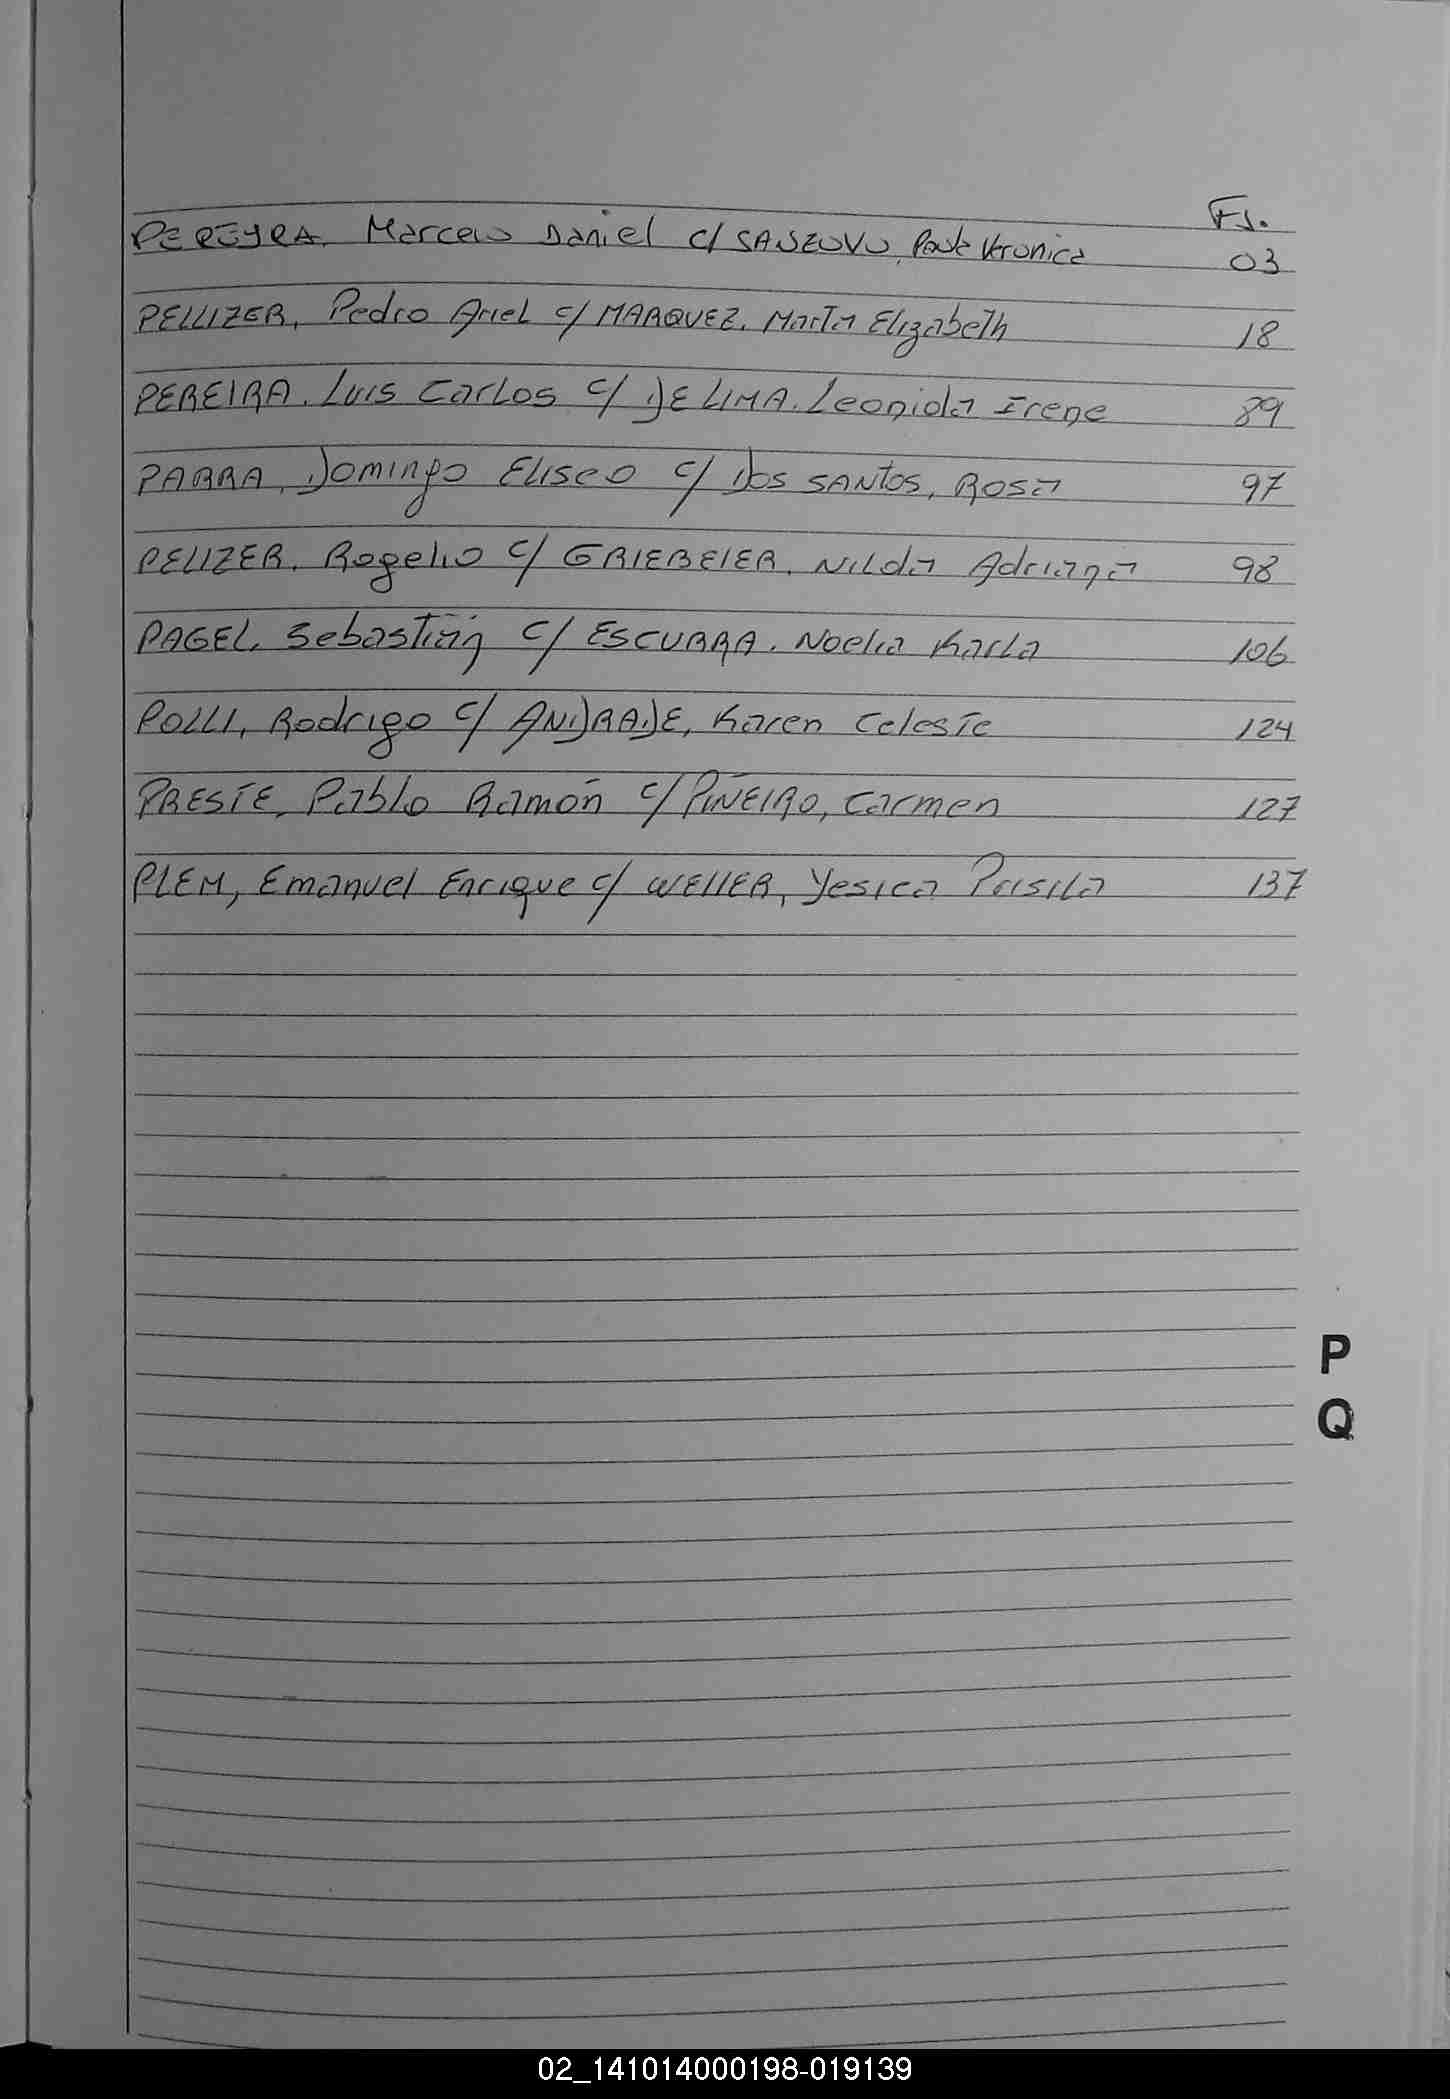 Fs.
PEREYRA, Marcelo Daniel c/ SANZOVO, Paola Veronica 03
PELLIZER, Pedro Ariel c/ MARQUEZ, Marta Elizabeth 18
PEREIRA, Luis Carlos c/ DE LIMA, Leonida Irene 89
PARRA, Domingo Eliseo c/ Dos SANtos, Rosa 97
PELLIZER, Rogelio c/ GRIEBELER, Nilda Adriana 98
PAGEL, Sebastián c/ ESCURRA, Noelia Karla 106
POLLI, Rodrigo c/ ANDRADE, Karen Celeste 124
PRESTE, Pablo Ramón c/ PIÑEIRO, Carmen 127
PLEM, Emanuel Enrique c/ WELLER, Yesica Prisila 137
P
Q
02_141014000198-019139